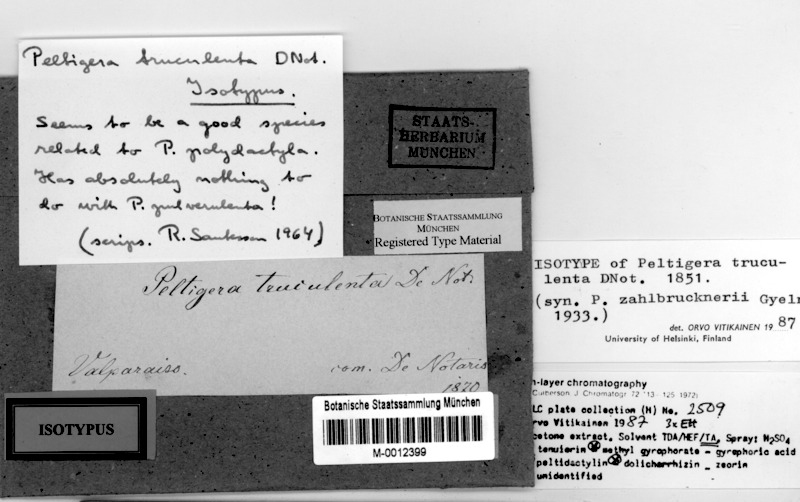 Peltigera truculenta DNot.
Isotypus.
Seems to be a good species
related to P. polydactyla.
Has absolutely nothing to
do with P. pulverulenta!
(scrips. R. Santesson 1964)
STAATS-
HERBARIUM
MÜNCHEN
BOTANISCHE STAATSSAMMLUNG
MÜNCHEN
Registered Type Material
Peltigera truculenta De Not.
Valparaiso. com. De Notaris
1870
ISOTYPUS
Botanische Staatssammlung München
M-0012399
ISOTYPE of Peltigera trucu-
lenta DNot. 1851.
(syn. P. zahlbrucknerii Gyeln
1933.)
det. ORVO VITIKAINEN 1987
University of Helsinki, Finland
n-layer chromatography
Culberson, J. Chromatogr. 72: 113-125. 1972)
LC plate collection (H) No. 2509
rvo Vitikainen 1987 3x Ett
cetone extract. Solvent TDA/HEF/TA, Spray: H2SO4
tenuiorin methyl gyrophorate - gyrophoric acid
peltidactylin dolichorrhizin - zeorin
unidentified